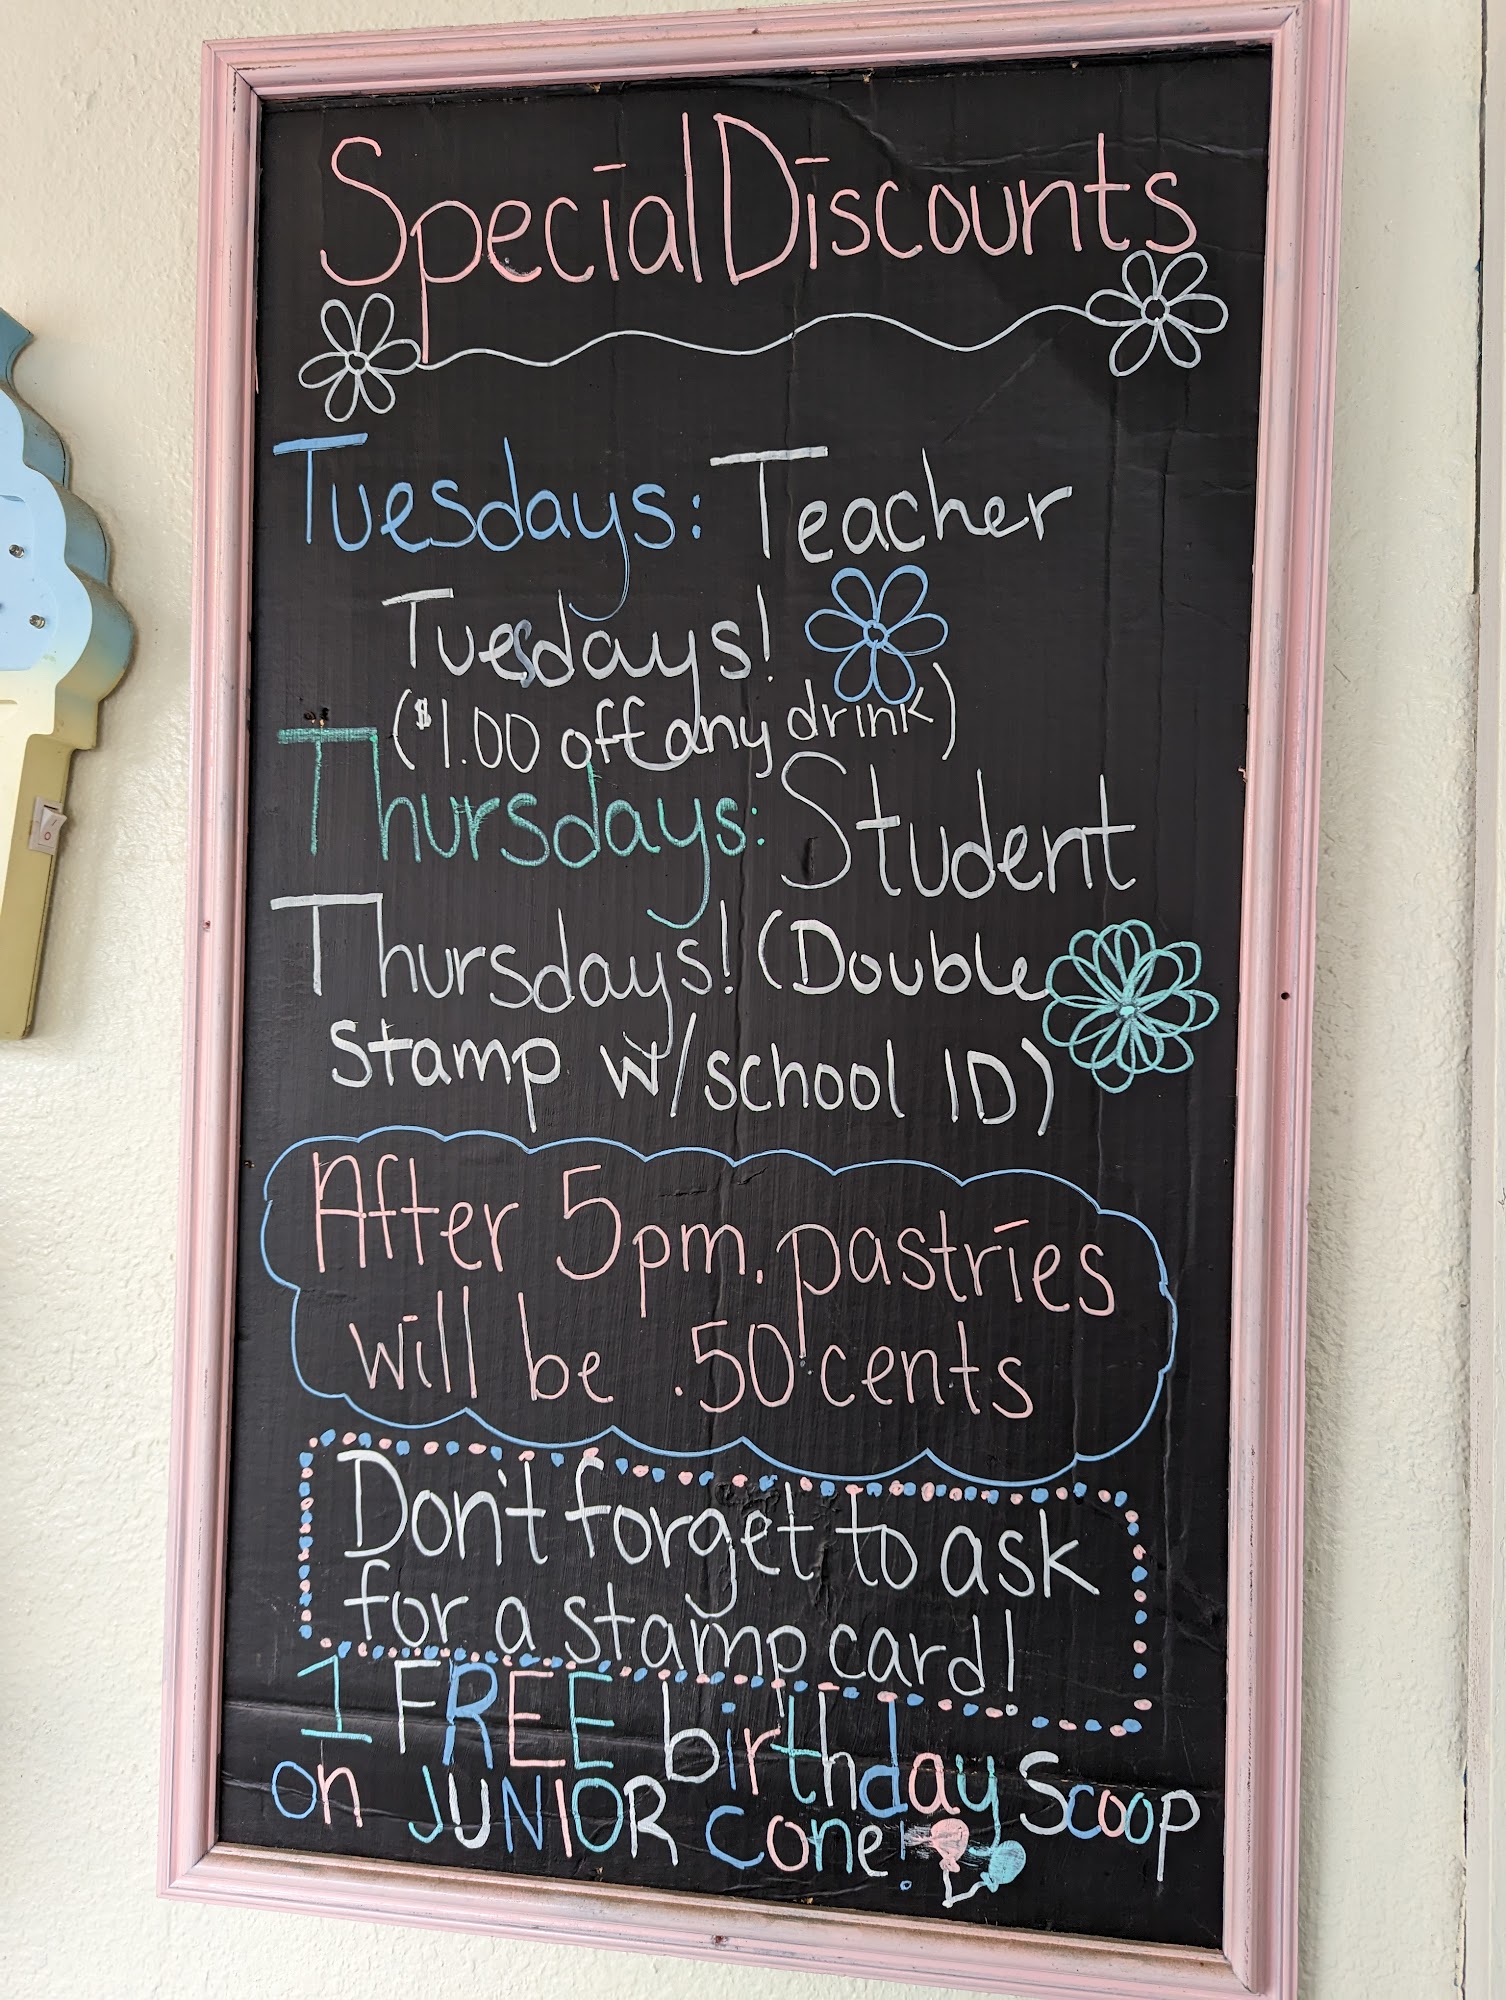 Special Discounts
Tuesdays: Teacher
Tuesdays!
($1.00 off any drink)
Thursdays: Student
Thursdays! (Double
stamp w/school ID)
After 5pm. pastries
will be .50 cents
Don't forget to ask
for a stamp card!
1 FREE birthday Scoop
on JUNIOR cone!